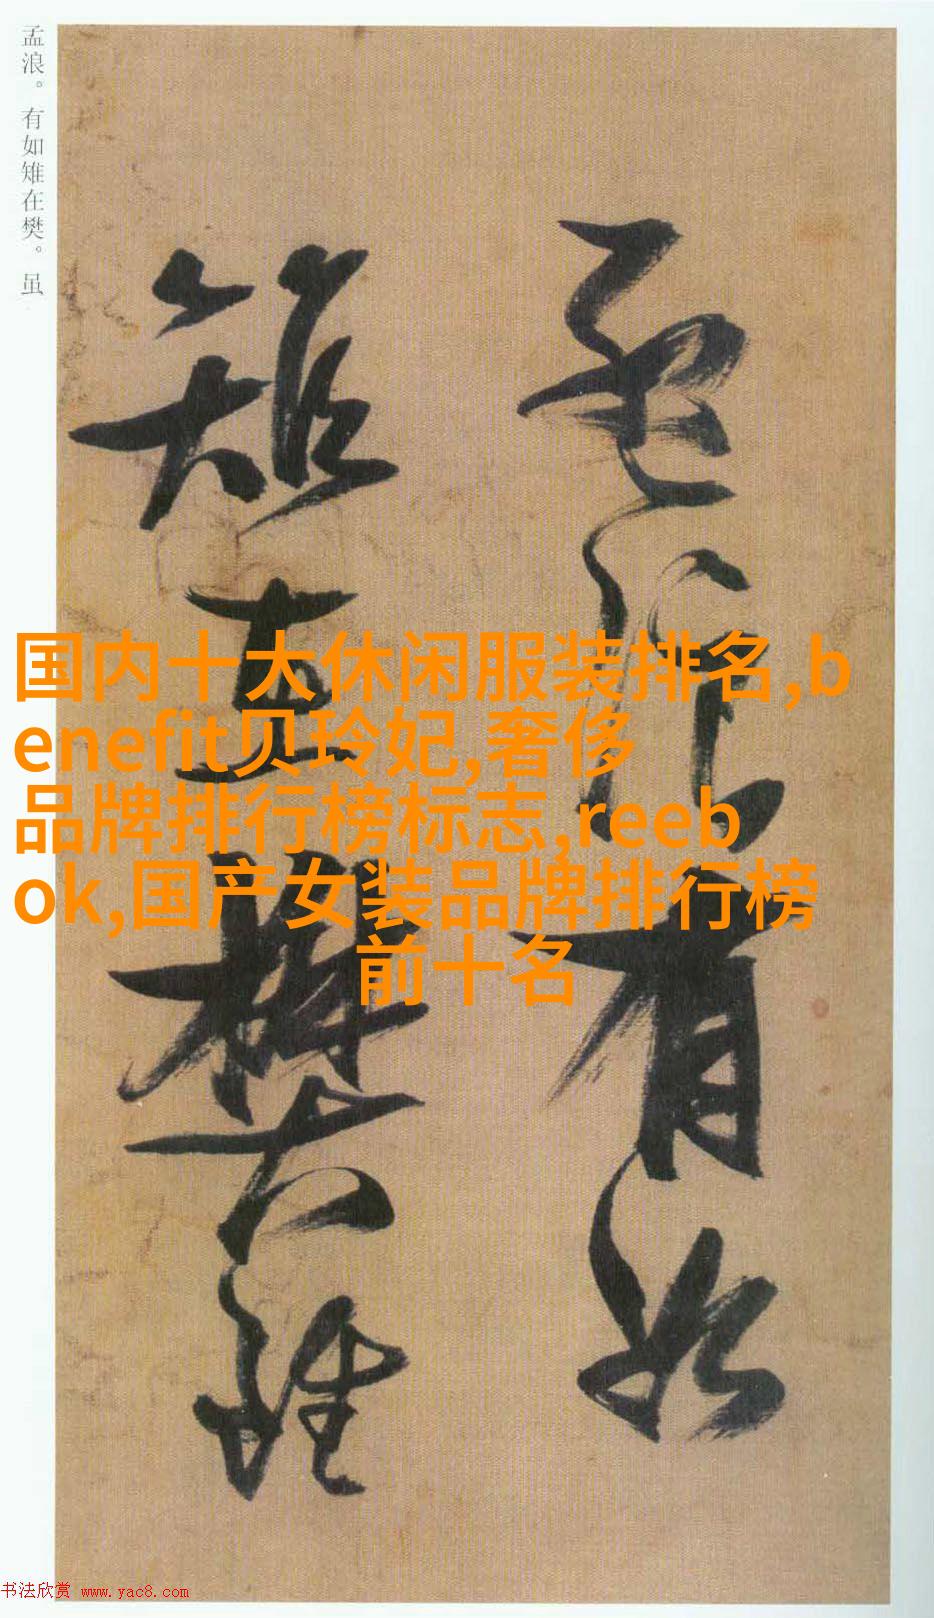 孟浪。有如雉在樊。虽
孟浪有如
雉在樊虽
国内十大休闲服装排名,b
enefit贝玲妃,奢侈
品牌排行榜标志,reeb
ok,国产女装品牌排行榜
前十名
书法欣赏 www.yac8.com